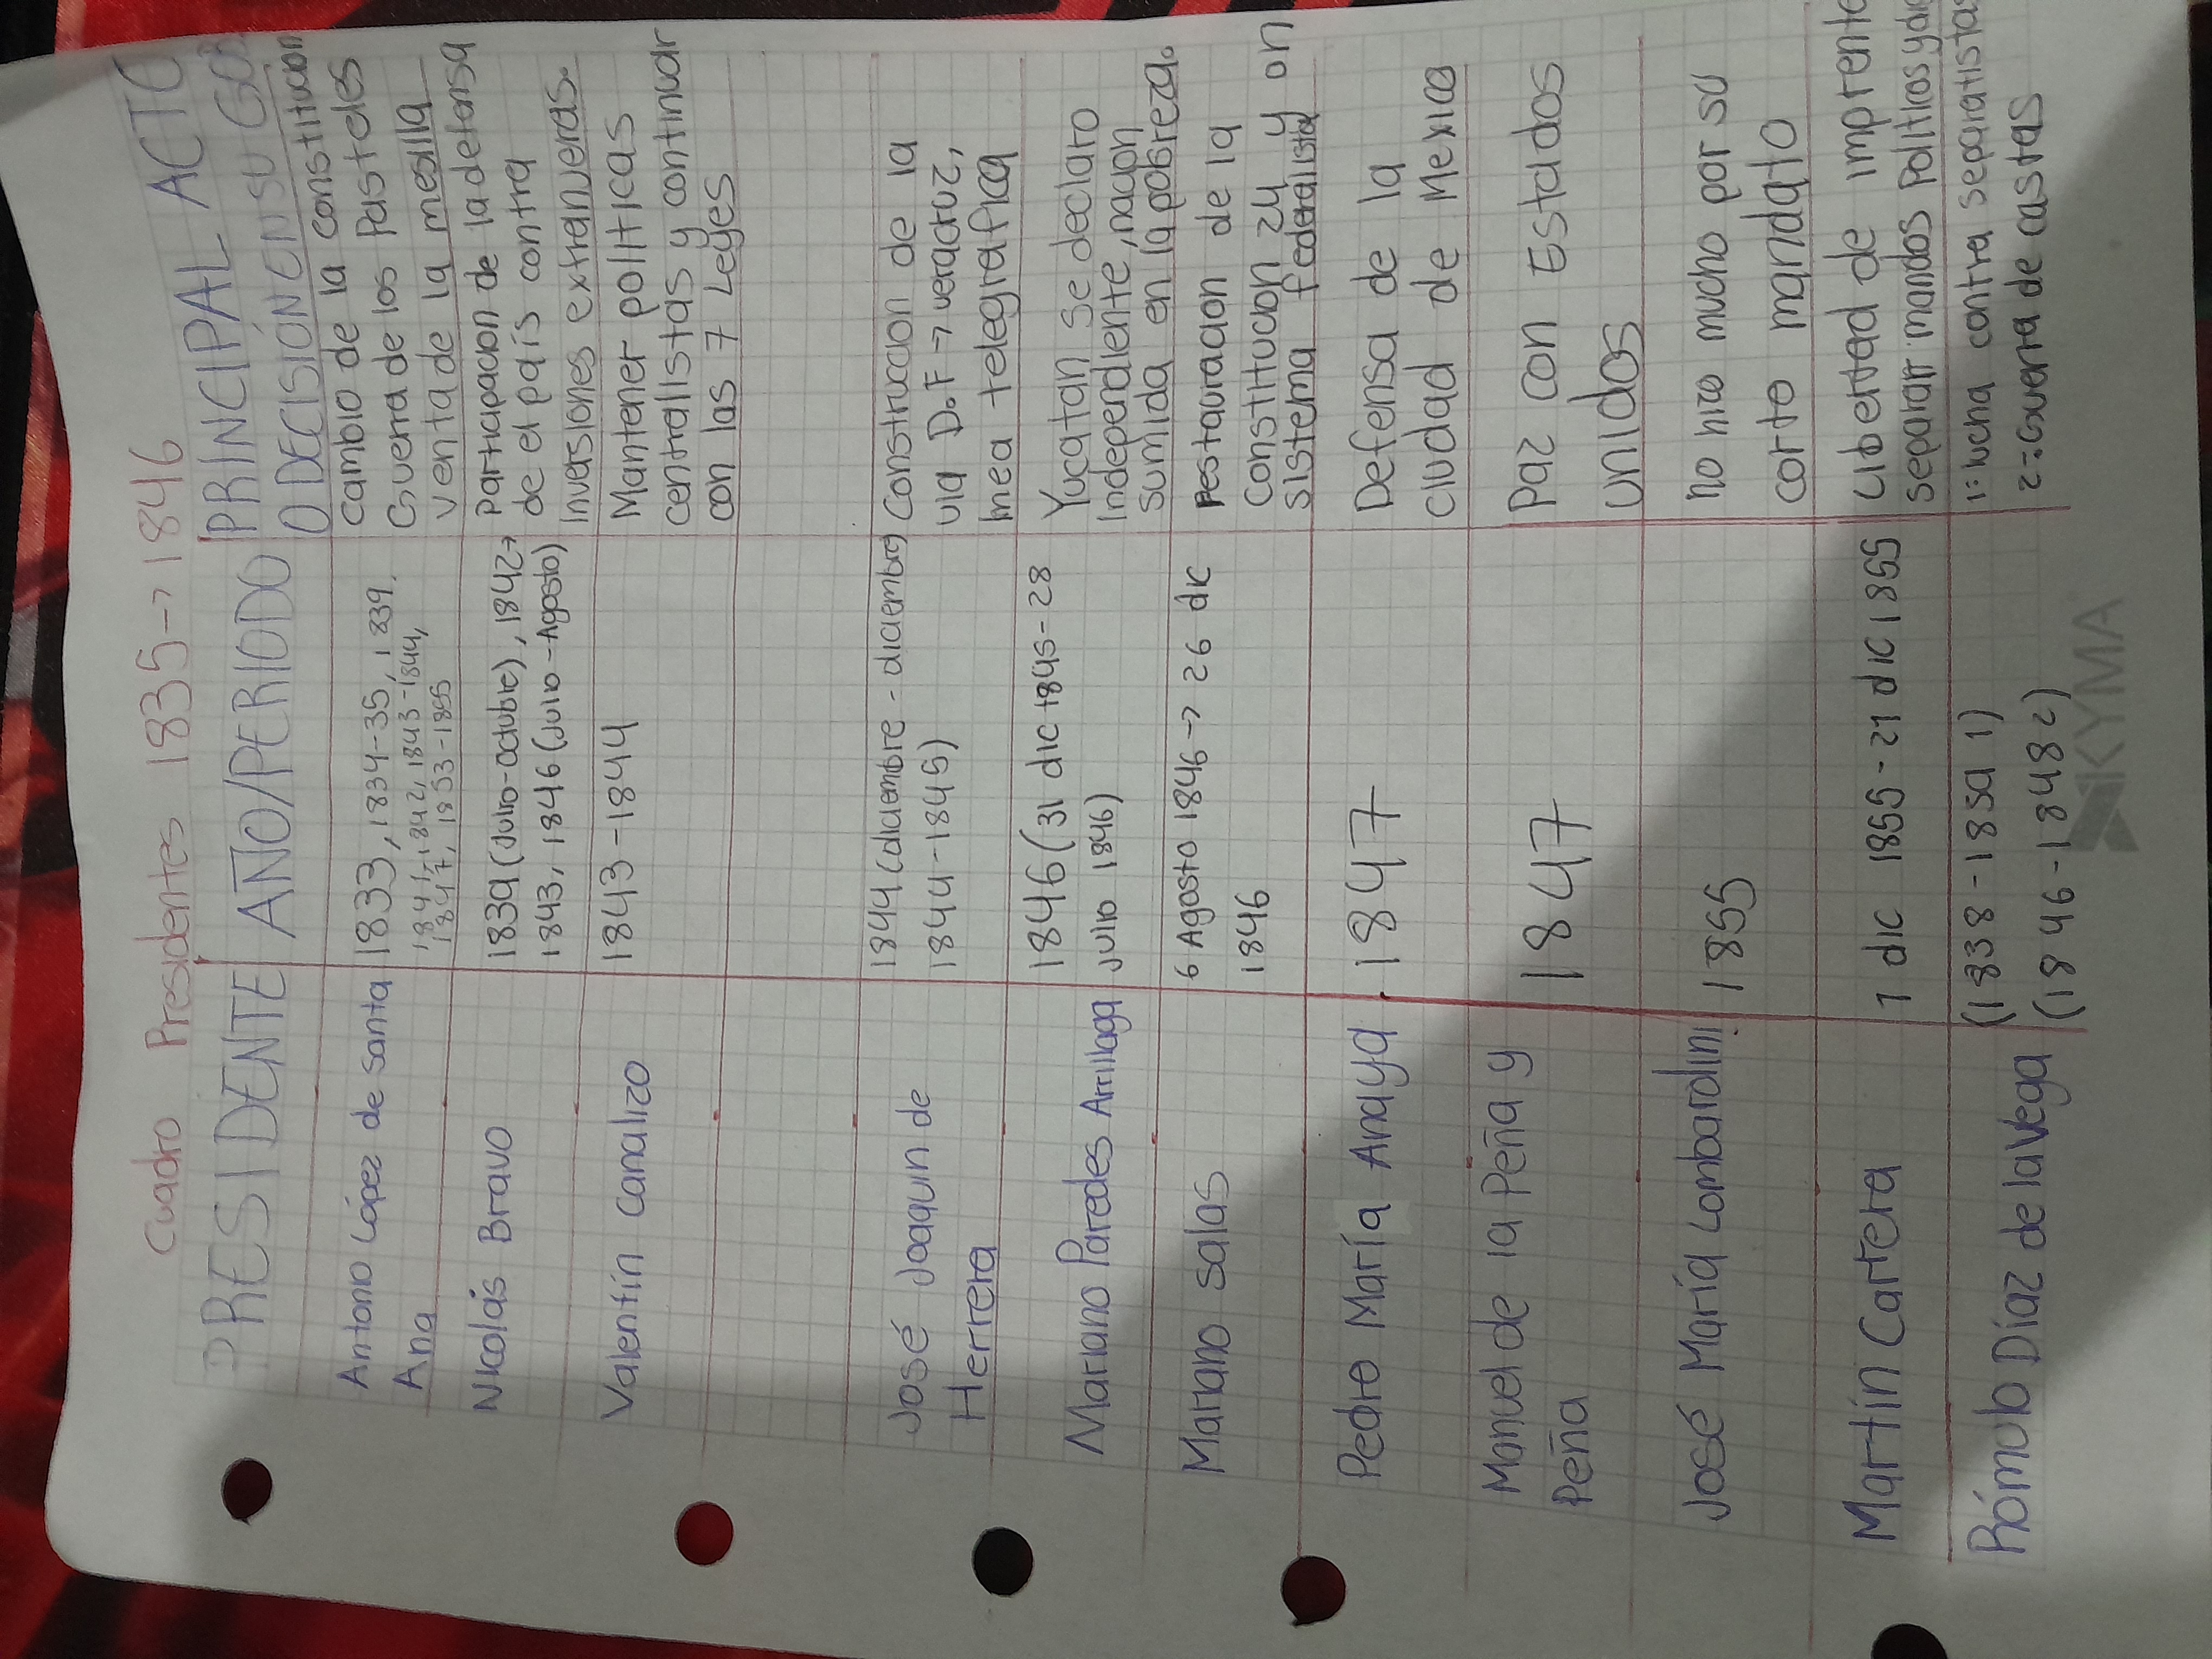 Cuadro Presidentes 1835→1846
PRESIDENTE
AÑO/PERIODO
PRINCIPAL ACTO
O DECISIÓN EN SU GOB
Antonio López de Santa
Ana
1833, 1834-35, 1839,
1841, 1842, 1843-1844,
1847, 1853-1855
cambio de la constitucion
Guerra de los Pasteles
venta de la mesilla
Nicolás Bravo
1839 (Julio-octubre), 1842→
1843, 1846 (Julio-Agosto)
Participacion de la defensa
de el país contra
inversiones extranueras.
Valentín Canalizo
1843-1844
Mantener politicas
centralistas y continuar
con las 7 Leyes
José Joaquin de
Herrera
1844 (diciembre - diciembre)
1844-1845)
Construccion de la
via D.F → veracruz,
linea telegrafica
Mariano Paredes Arrillaga
1846 (31 dic 1845-28
Julio 1846)
Yucatan se declaro
Independiente, nacion
sumida en la pobreza.
Mariano Salas
6 Agosto 1846→ 26 dic
1846
restauracion de la
constitucion 24 y on
sistema federalista
Pedro María Anaya
1847
Defensa de la
ciudad de Mexico
Manuel de la Peña y
Peña
1847
Paz con Estados
unidos
José María Lombardini
1855
no hizo mucho por su
corto mandato
Martín Carrera
1 dic 1855-21 dic 1855
Libertad de imprenta
separar mandos politicos y
Rómulo Díaz de la Vega
(1838-1859 1)
(1846-1848 2)
1: lucha contra separatistas
2-: Guerra de castas
KYMA